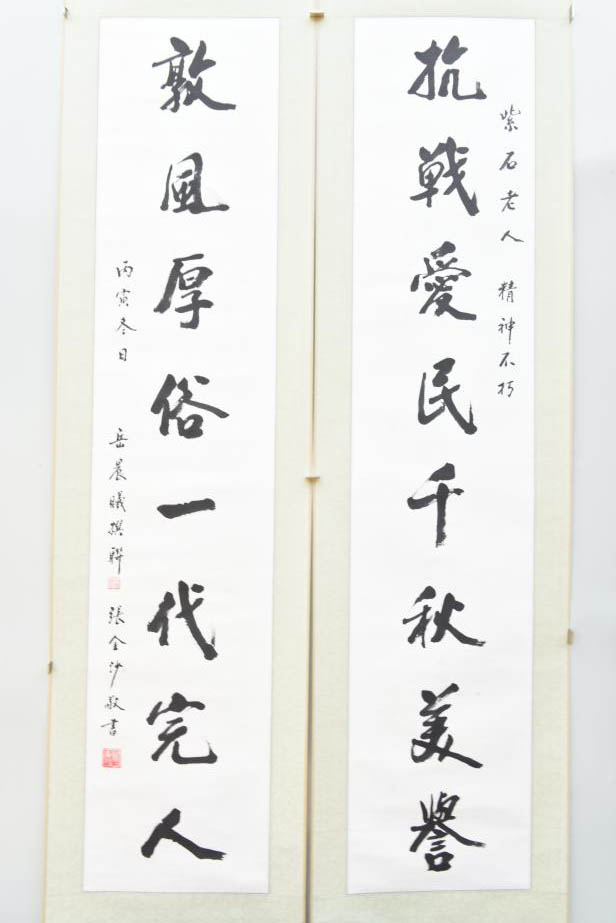 紫石老人 精神不朽
抗戰愛民千秋美譽
敦風厚俗一代完人
丙寅冬日 岳晨曦撰聯 張全沙敬書